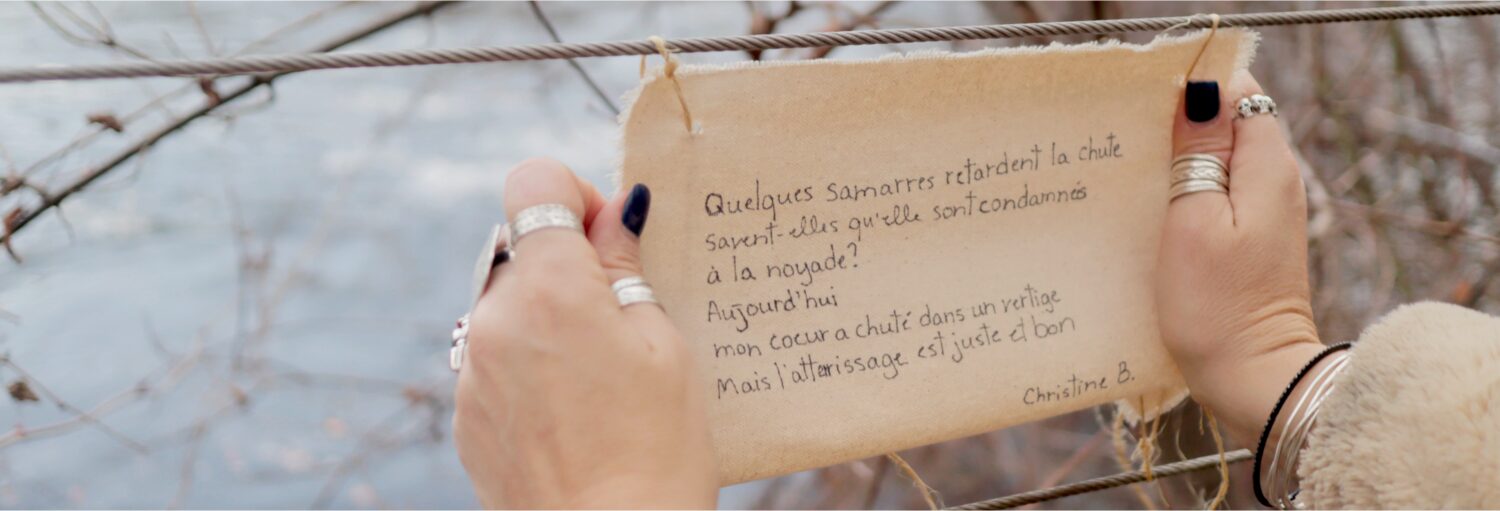 Quelques Samarres retardent la chute
savent-elles qu'elle sont condamnés
à la noyade?
Aujourd'hui
mon coeur a chuté dans un vertige
Mais l'atterissage est juste et bon
Christine B.